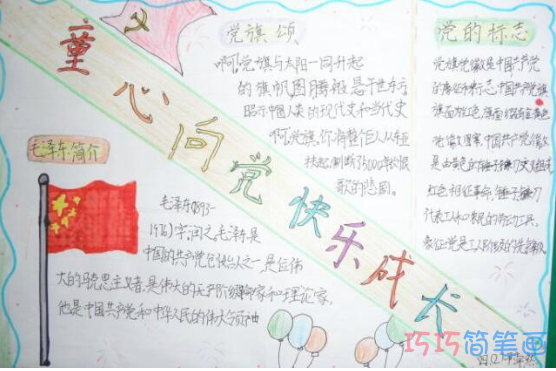 童心向党快乐成长
党旗颂
啊,党旗与太阳一同升起
的旗帜图腾般悬于世东方
昭示中国人类的现代史和当代史
啊党旗,你将整个巨人从东亚
歌的悲剧。
党的标志
党旗党徽是中国共产党
的象征和标志.中国共产党党旗
旗面为红色,旗面
党徽图案,中国共产党党徽
是由黄色的锤子镰刀
红色相征革命,锤子镰刀
代表工人和农民的劳动工具,
象征党是工人阶级的先锋队
毛泽东简介
毛泽东(1893-
1976)字润之.毛泽东是
中国的共产党创始人之一是位伟
大的马克思主义者,是伟大的无产阶级革命家和理论家,
他是中国共产党和中华人民的伟大领袖
四(2)
巧巧简笔画